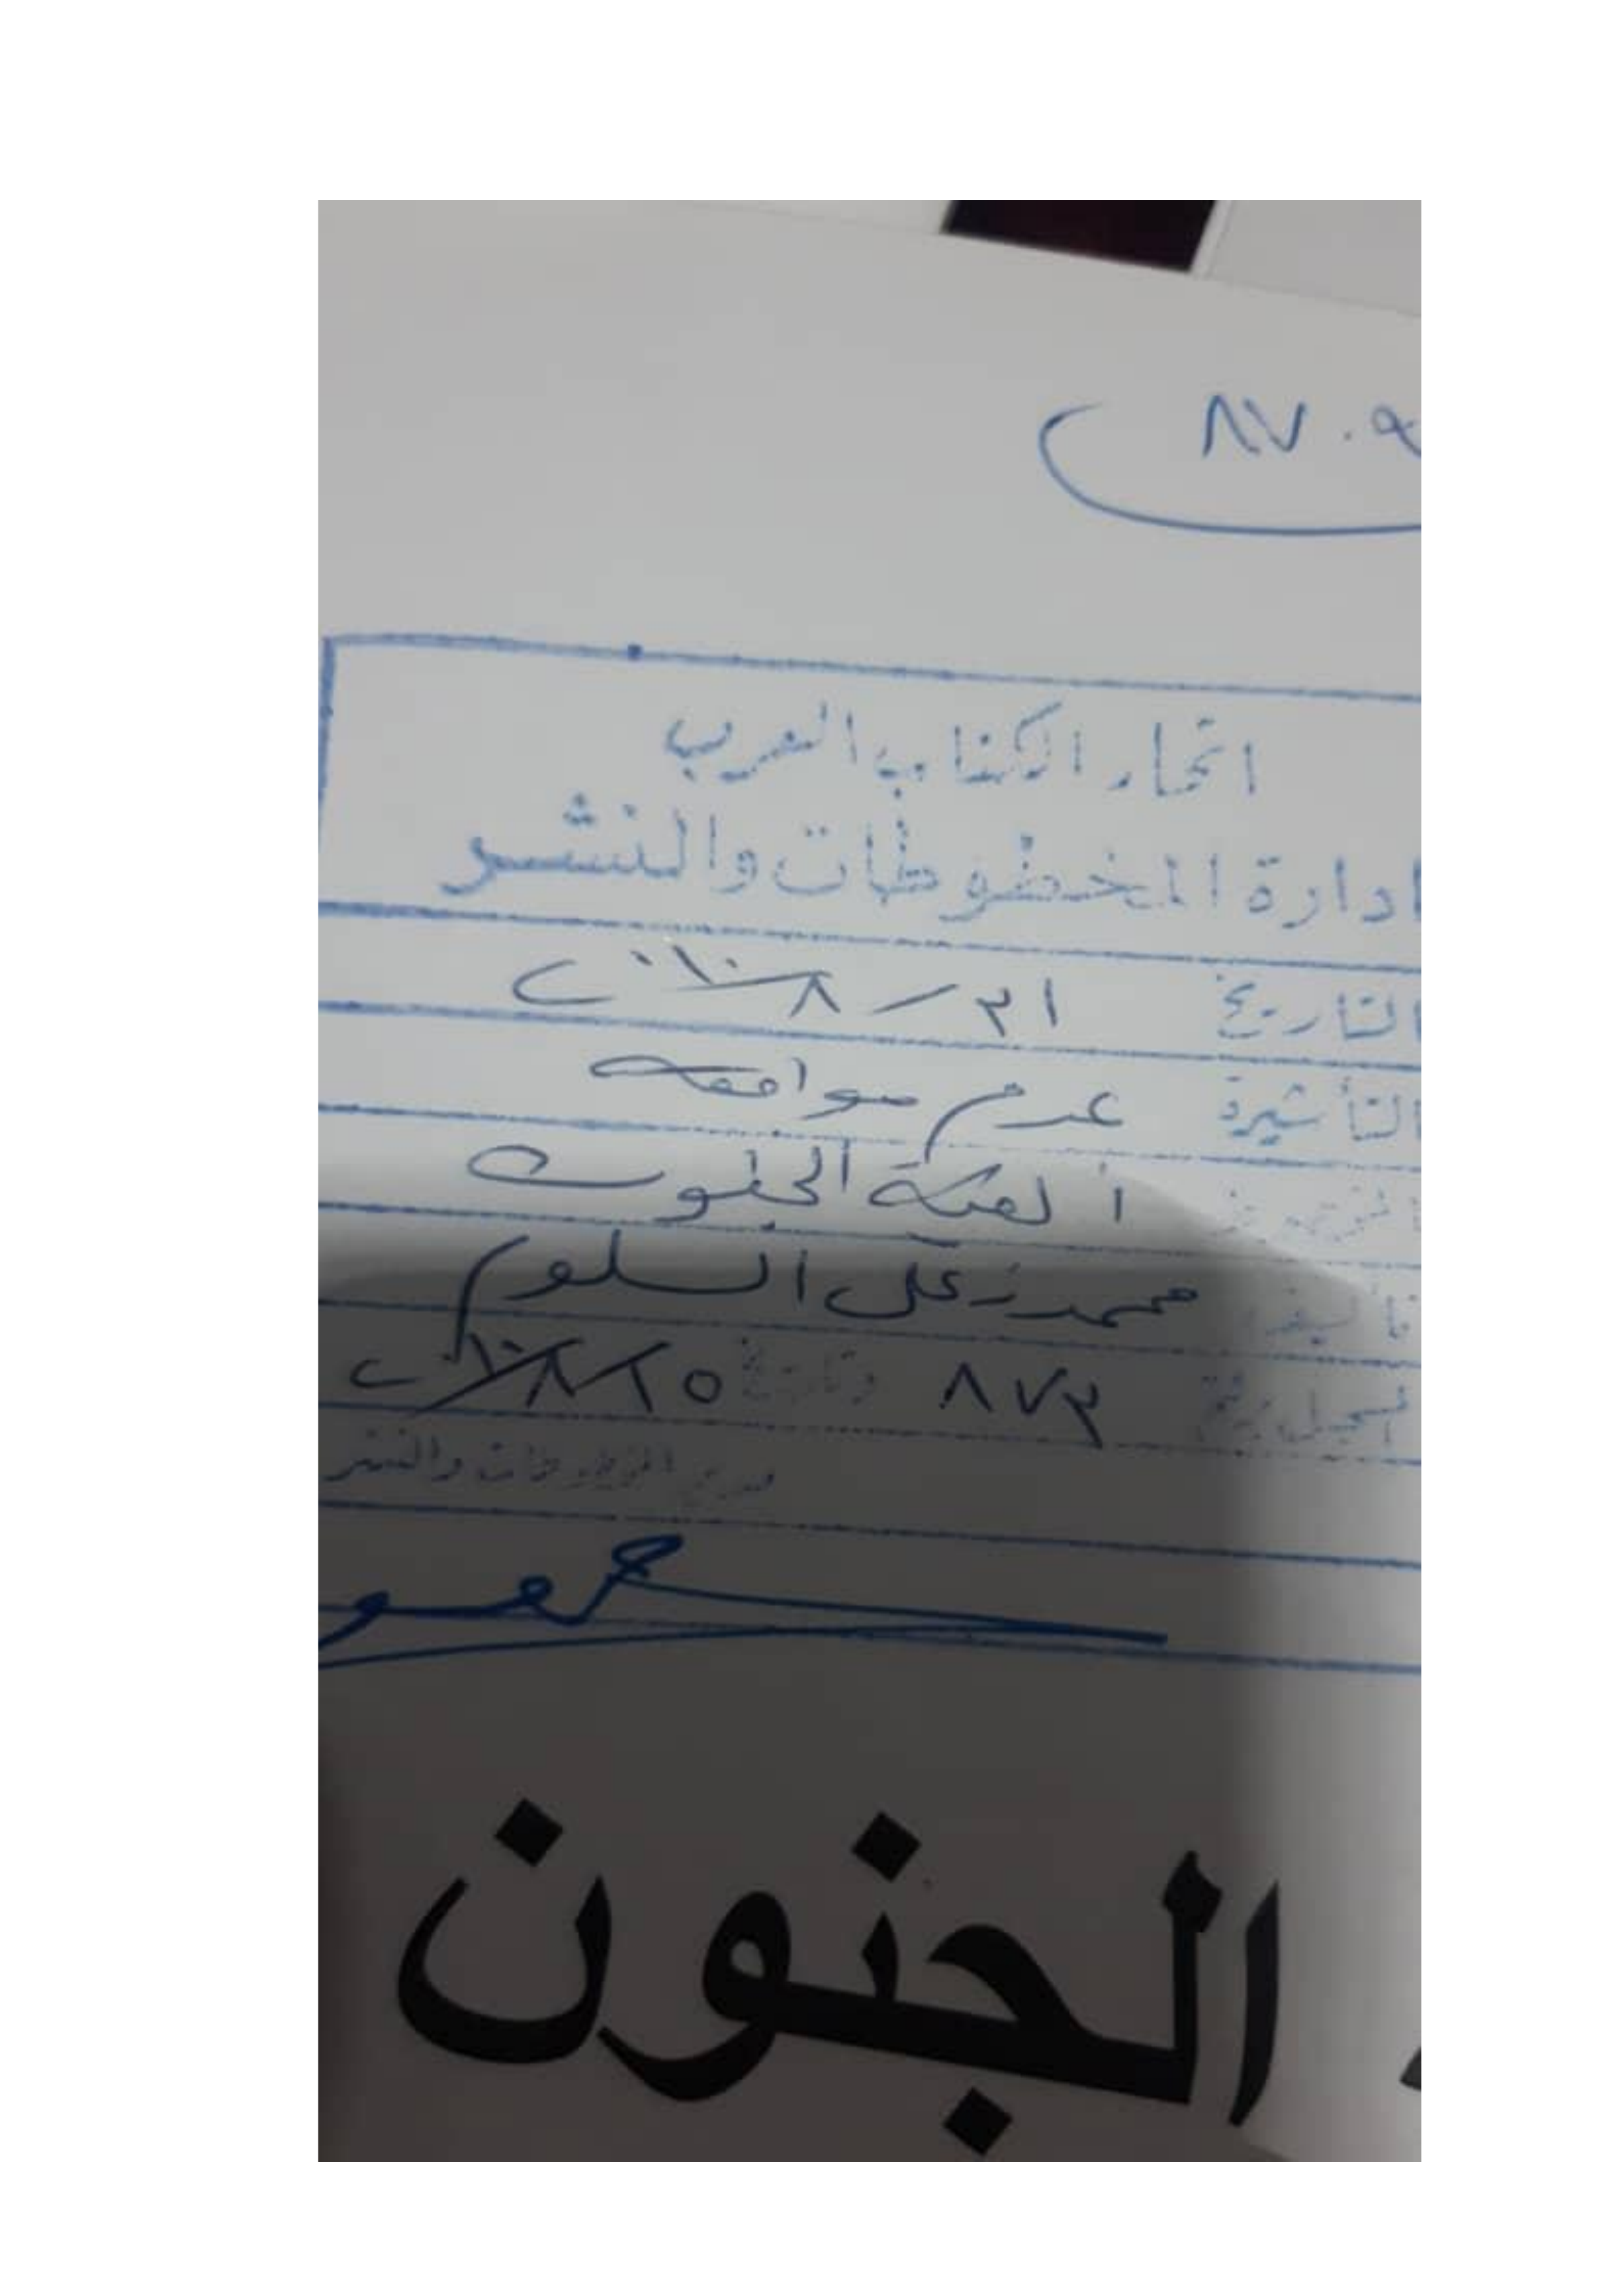 ٨٧٠
اتحاد الكتاب العرب
ادارة المخطوطات والنشر
التاريخ ٣١ / ٨ / ٢٠١٠
التأشيرة عدم موافقة
الجنون
تأليف محمد زعل السلوم
تسجيل برقم ٨٧٣ وتاريخ ١٥ / ٨ / ٢٠١٠
مدير المخطوطات والنشر
الجنون